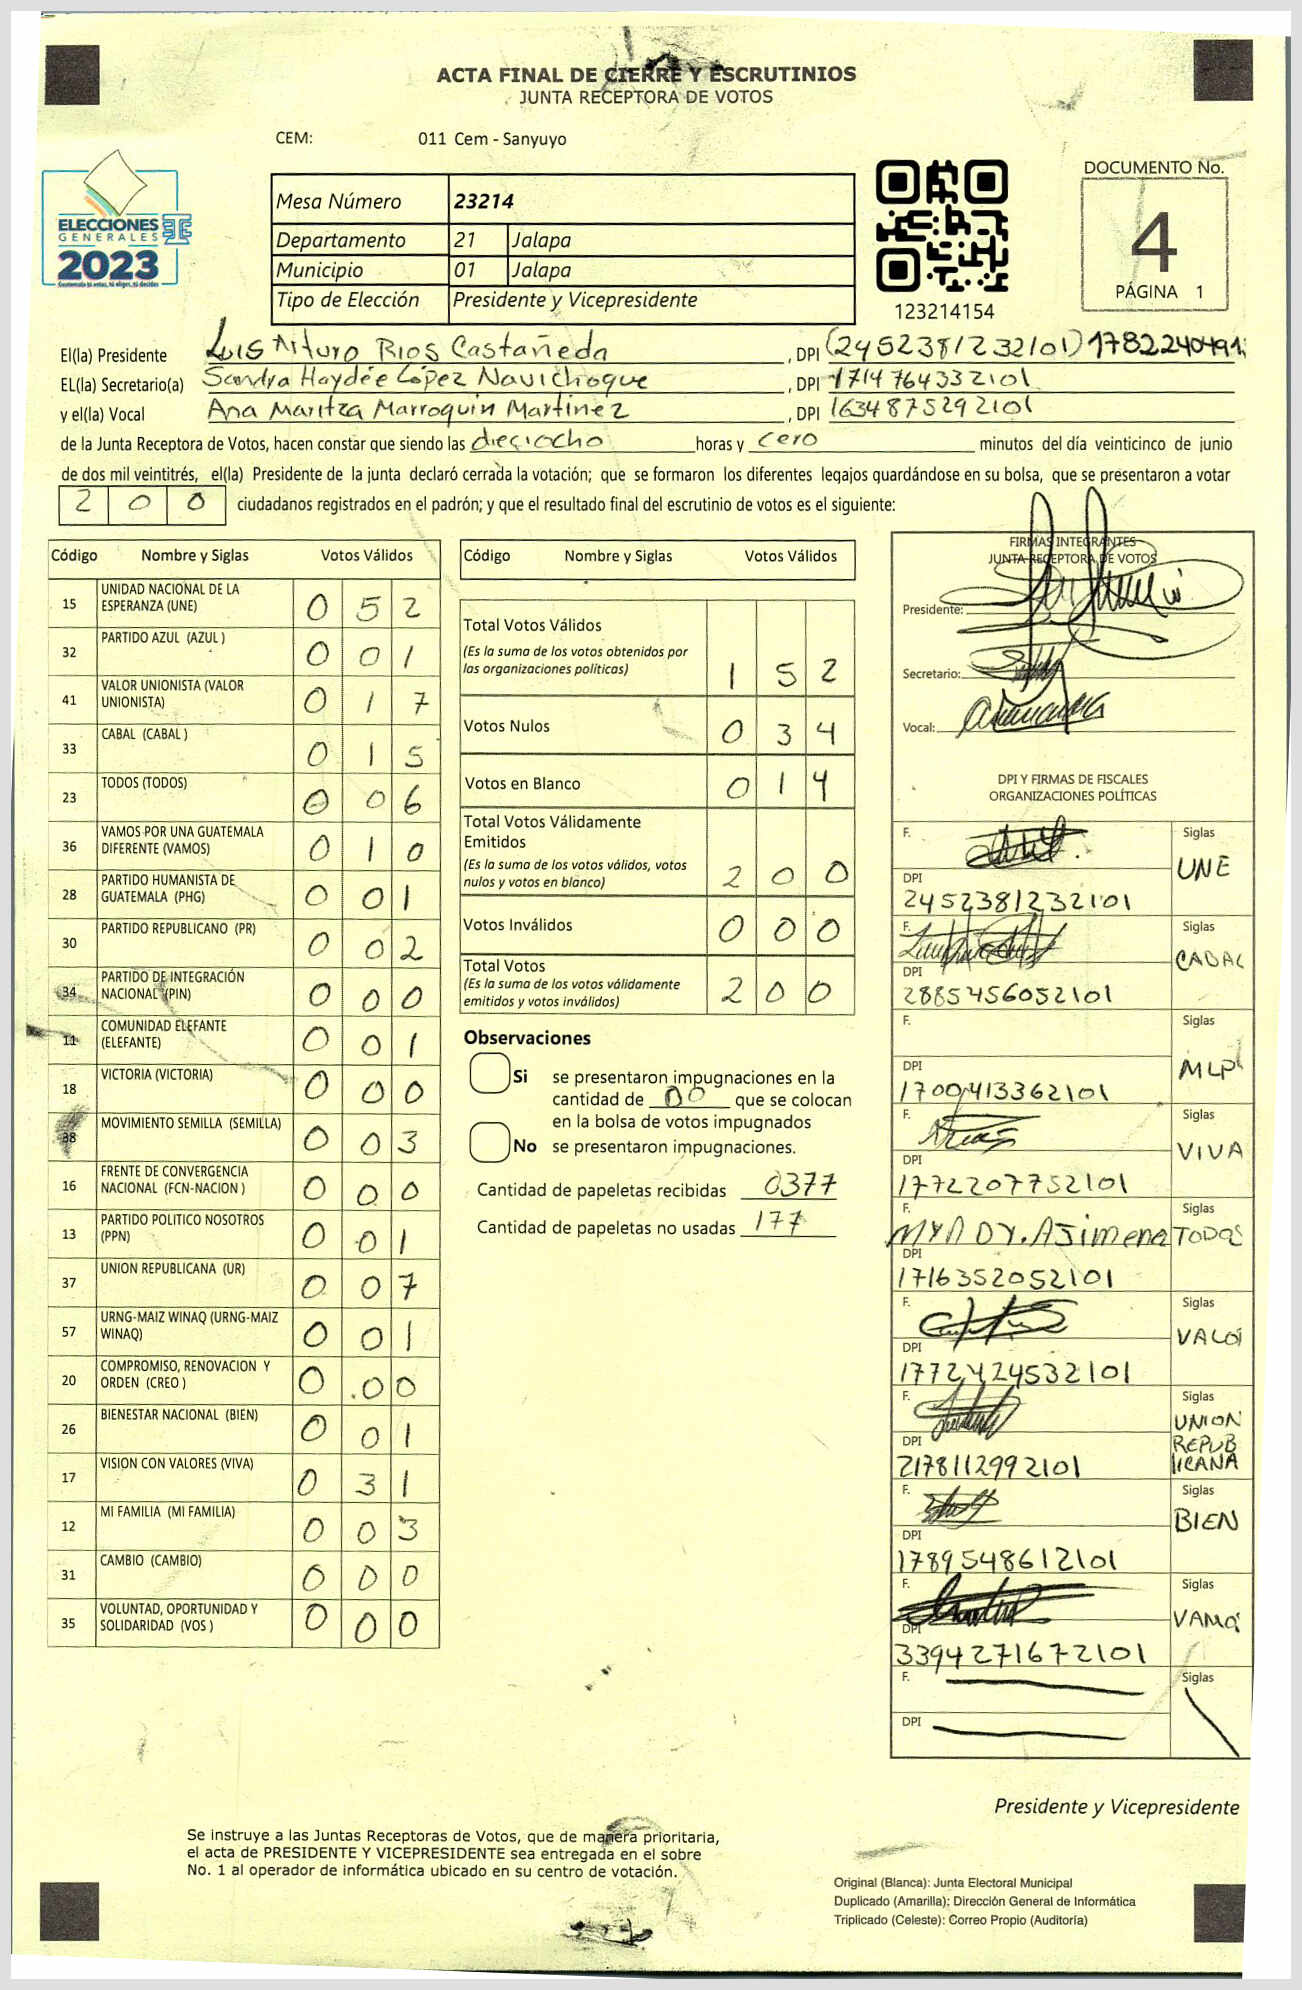 ACTA FINAL DE CIERRE Y ESCRUTINIOS
JUNTA RECEPTORA DE VOTOS
CEM: 011 Cem - Sanyuyo
ELECCIONES
GENERALES
2023
Guatemala tú votas, tú eliges, tú decides
Mesa Número 23214
Departamento 21 Jalapa
Municipio 01 Jalapa
Tipo de Elección Presidente y Vicepresidente
123214154
DOCUMENTO No.
4
PÁGINA 1
El(la) Presidente Luis Arturo Rios Castañeda, DPI (2452381232101) 1782240491
EL(la) Secretario(a) Sandra Haydée López Navichoque, DPI 1714764332101
y el(la) Vocal Ana Maritza Marroquin Martinez, DPI 1634875292101
de la Junta Receptora de Votos, hacen constar que siendo las dieciocho horas y cero minutos del día veinticinco de junio
de dos mil veintitrés, el(la) Presidente de la junta declaró cerrada la votación; que se formaron los diferentes legajos guardándose en su bolsa, que se presentaron a votar
2 0 0 ciudadanos registrados en el padrón; y que el resultado final del escrutinio de votos es el siguiente:
Código Nombre y Siglas Votos Válidos
15 UNIDAD NACIONAL DE LA ESPERANZA (UNE) 0 5 2
32 PARTIDO AZUL (AZUL ) 0 0 1
41 VALOR UNIONISTA (VALOR UNIONISTA) 0 1 7
33 CABAL (CABAL ) 0 1 5
23 TODOS (TODOS) 0 0 6
36 VAMOS POR UNA GUATEMALA DIFERENTE (VAMOS) 0 1 0
28 PARTIDO HUMANISTA DE GUATEMALA (PHG) 0 0 1
30 PARTIDO REPUBLICANO (PR) 0 0 2
34 PARTIDO DE INTEGRACIÓN NACIONAL (PIN) 0 0 0
11 COMUNIDAD ELEFANTE (ELEFANTE) 0 0 1
18 VICTORIA (VICTORIA) 0 0 0
38 MOVIMIENTO SEMILLA (SEMILLA) 0 0 3
16 FRENTE DE CONVERGENCIA NACIONAL (FCN-NACION ) 0 0 0
13 PARTIDO POLITICO NOSOTROS (PPN) 0 0 1
37 UNION REPUBLICANA (UR) 0 0 7
57 URNG-MAIZ WINAQ (URNG-MAIZ WINAQ) 0 0 1
20 COMPROMISO, RENOVACION Y ORDEN (CREO ) 0 0 0
26 BIENESTAR NACIONAL (BIEN) 0 0 1
17 VISION CON VALORES (VIVA) 0 3 1
12 MI FAMILIA (MI FAMILIA) 0 0 3
31 CAMBIO (CAMBIO) 0 0 0
35 VOLUNTAD, OPORTUNIDAD Y SOLIDARIDAD (VOS ) 0 0 0
Código Nombre y Siglas Votos Válidos
Total Votos Válidos
(Es la suma de los votos obtenidos por
las organizaciones políticas) 1 5 2
Votos Nulos 0 3 4
Votos en Blanco 0 1 4
Total Votos Válidamente
Emitidos
(Es la suma de los votos válidos, votos
nulos y votos en blanco) 2 0 0
Votos Inválidos 0 0 0
Total Votos
(Es la suma de los votos válidamente
emitidos y votos inválidos) 2 0 0
Observaciones
Si se presentaron impugnaciones en la
cantidad de 00 que se colocan
en la bolsa de votos impugnados
No se presentaron impugnaciones.
Cantidad de papeletas recibidas 0377
Cantidad de papeletas no usadas 177
FIRMAS INTEGRANTES
JUNTA RECEPTORA DE VOTOS
Presidente:
Secretario:
Vocal:
DPI Y FIRMAS DE FISCALES
ORGANIZACIONES POLÍTICAS
F. Siglas UNE
DPI 2452381232101
F. Siglas CABAL
DPI 2885456052101
F. Siglas MLP
DPI 1700413362101
F. Siglas VIVA
DPI 1772207752101
F. MYNDY. AJimena Siglas TODOS
DPI 1716352052101
F. Siglas VALOR
DPI 1772424532101
F. Siglas UNION REPUBLICANA
DPI 2178112992101
F. Siglas BIEN
DPI 1789548612101
F. Siglas VAMOS
DPI 3394271672101
F. Siglas
DPI
Presidente y Vicepresidente
Se instruye a las Juntas Receptoras de Votos, que de manera prioritaria,
el acta de PRESIDENTE Y VICEPRESIDENTE sea entregada en el sobre
No. 1 al operador de informática ubicado en su centro de votación.
Original (Blanca): Junta Electoral Municipal
Duplicado (Amarilla): Dirección General de Informática
Triplicado (Celeste): Correo Propio (Auditoría)